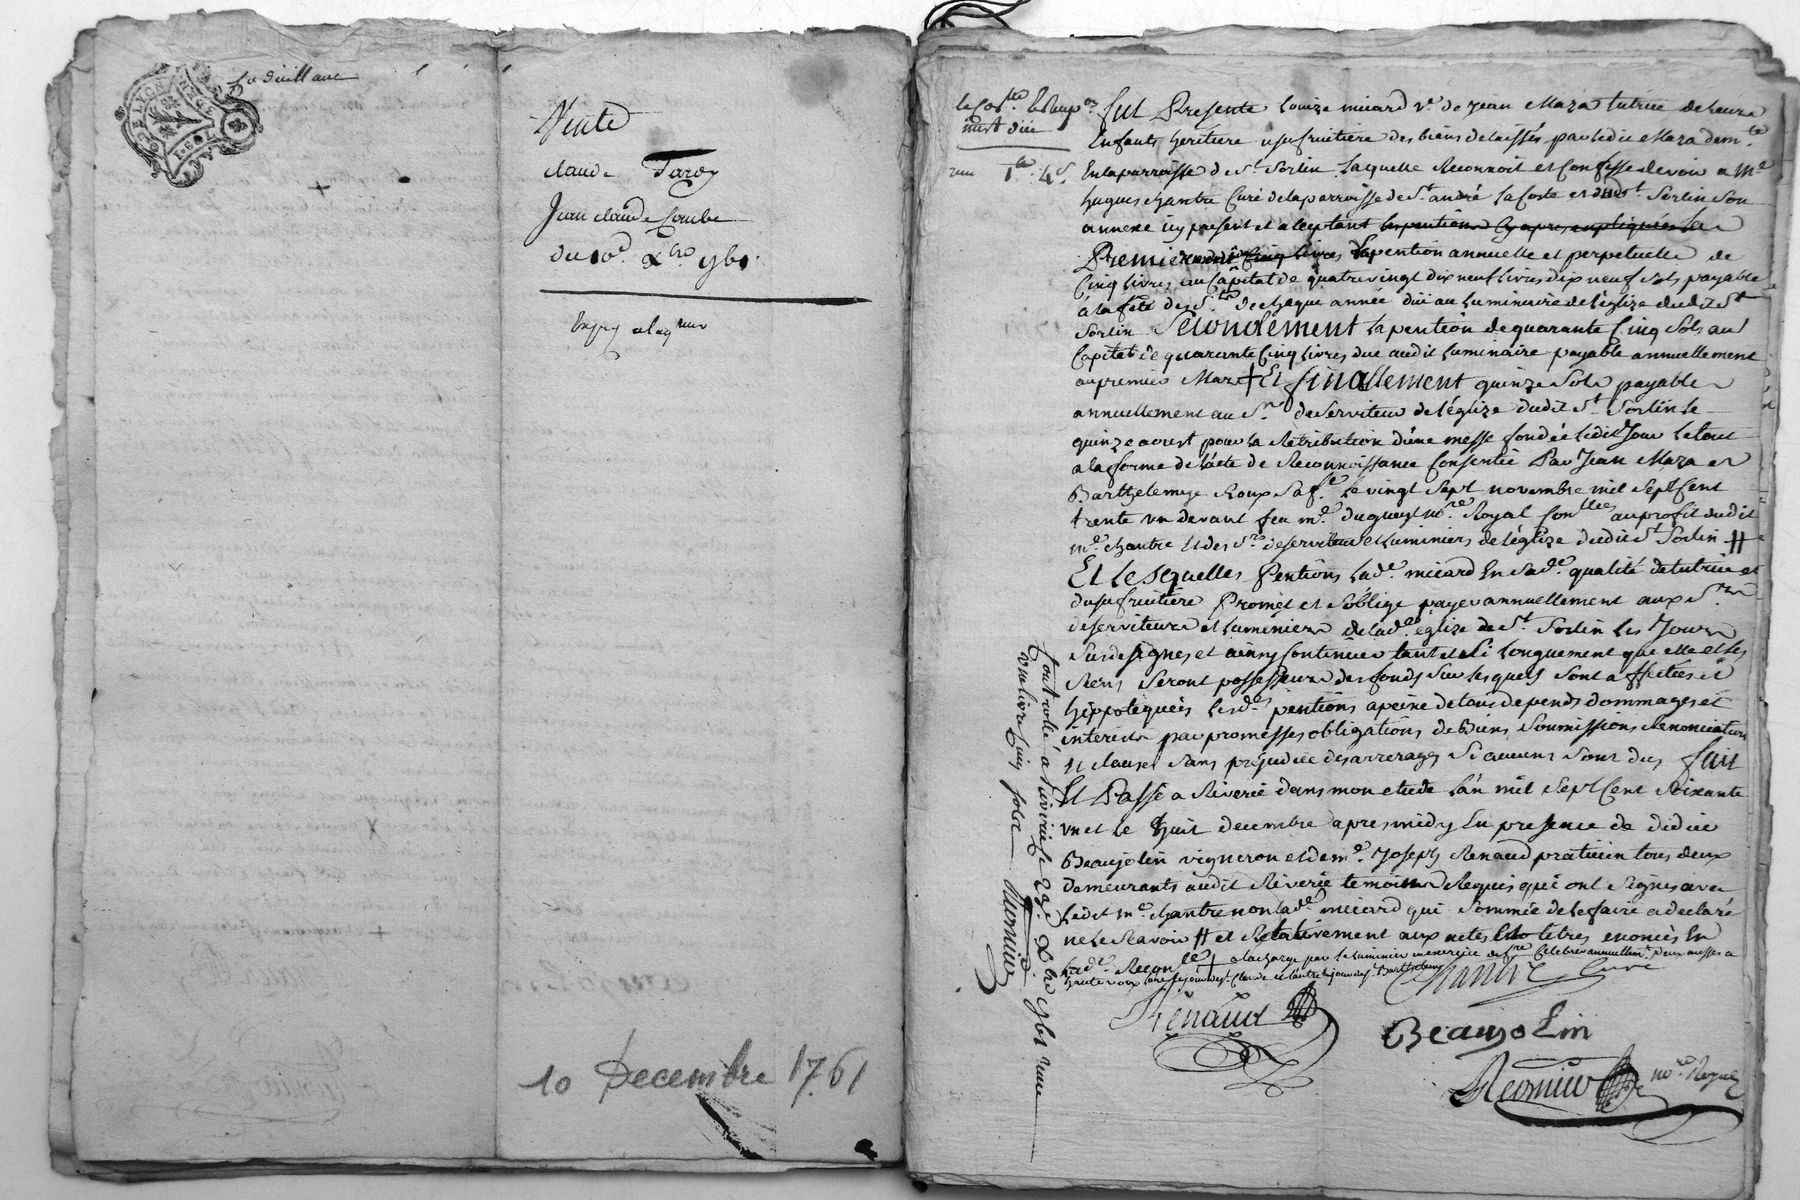 DE LYON
Vente
claude Farey
Jean claude Combe
du 10e. xbre 1761.
10 Decembre 1761
Fut Presente Louize micard ve. de Jean Maza tutrice de leurs
Enfants heritiere usufruitiere des biens delaissés par ledit Maza demte.
En la parroisse de St. Sorlin Laquelle Reconnoit et Confesse devoir a Me
hugues chantre Curé de la parroisse de St. andré La Coste et dudt. St Sorlin Son
annexe icy present et acceptant les pentions cy apres expliquées
Premierement Cinq livres de pention annuelle et perpetuelle de
Cinq livres au Capital de quatre vingt dix neuf livres dix neuf sols payable
a la fete des Sts. de chaque année due au luminaire de l'églize dudit St
Sorlin Secondement la pention de quarante Cinq Sols au
Capital de quarante Cinq livres due audit luminaire payable annuellement
au premier Mars + Et finallement quinze Sols payable
annuellement au Sr. deserviteur de l'églize dudit St. Sorlin le
quinze aoust pour la Retribution d'une messe fondée ledit Jour le tout
a la forme de l'acte de Reconnoissance Consentie Par Jean Maza et
Barthelemye Roux Sa fe. le vingt Sept novembre mil Sept Cent
trente un devant feu me. dugueyt nore Royal au profit dudit
me. chantre et des Srs. deserviteur et luminiers de l'églize dudit St Sorlin #
Et Lesquelles Pentions lade. micard En Sade. qualité de tutrice et
d'usufruitiere Promet et S'oblige payer annuellement aux Srs
deserviteurs et luminiers de lade. églize de St. Sorlin les Jours
Susdesignés et ainsy Continuer tant et Si longuement que elle et les
Siens Seront possesseurs des fonds Sur lesquels Sont affectées et
hippotequées lesdes. pentions a peine de tous depends dommages et
interests par promesses obligations de Biens Soumissions Renonciations
et clauses Sans prejudice des arrerages Si aucuns Sont dus fait
Et Passé a Riverie dans mon etude l'an mil Sept Cent Soixante
un et le huit decembre apres midy En presence de didier
Beaujolin vigneron et de me. Joseph Renaud praticien tous deux
demeurants audit Riverie temoins Requis qui ont Signés avec
ledit me. chantre non lade. micard qui Sommée de le faire a declaré
ne le Savoir # et Relativement aux actes et titres enoncés En
lade. Recon + a la charge par le luminier en exercice de faire Celebrer annuellemt. deux messes a
haute voix l'une le jour de St. Claude et l'autre le jour de St. Barthelemy
Chantre Curé
Renaud
Beaujolin
nore. Royal
Controllé a Riverie le 23e. xbre 1761 reçu
une livre Cinq sols